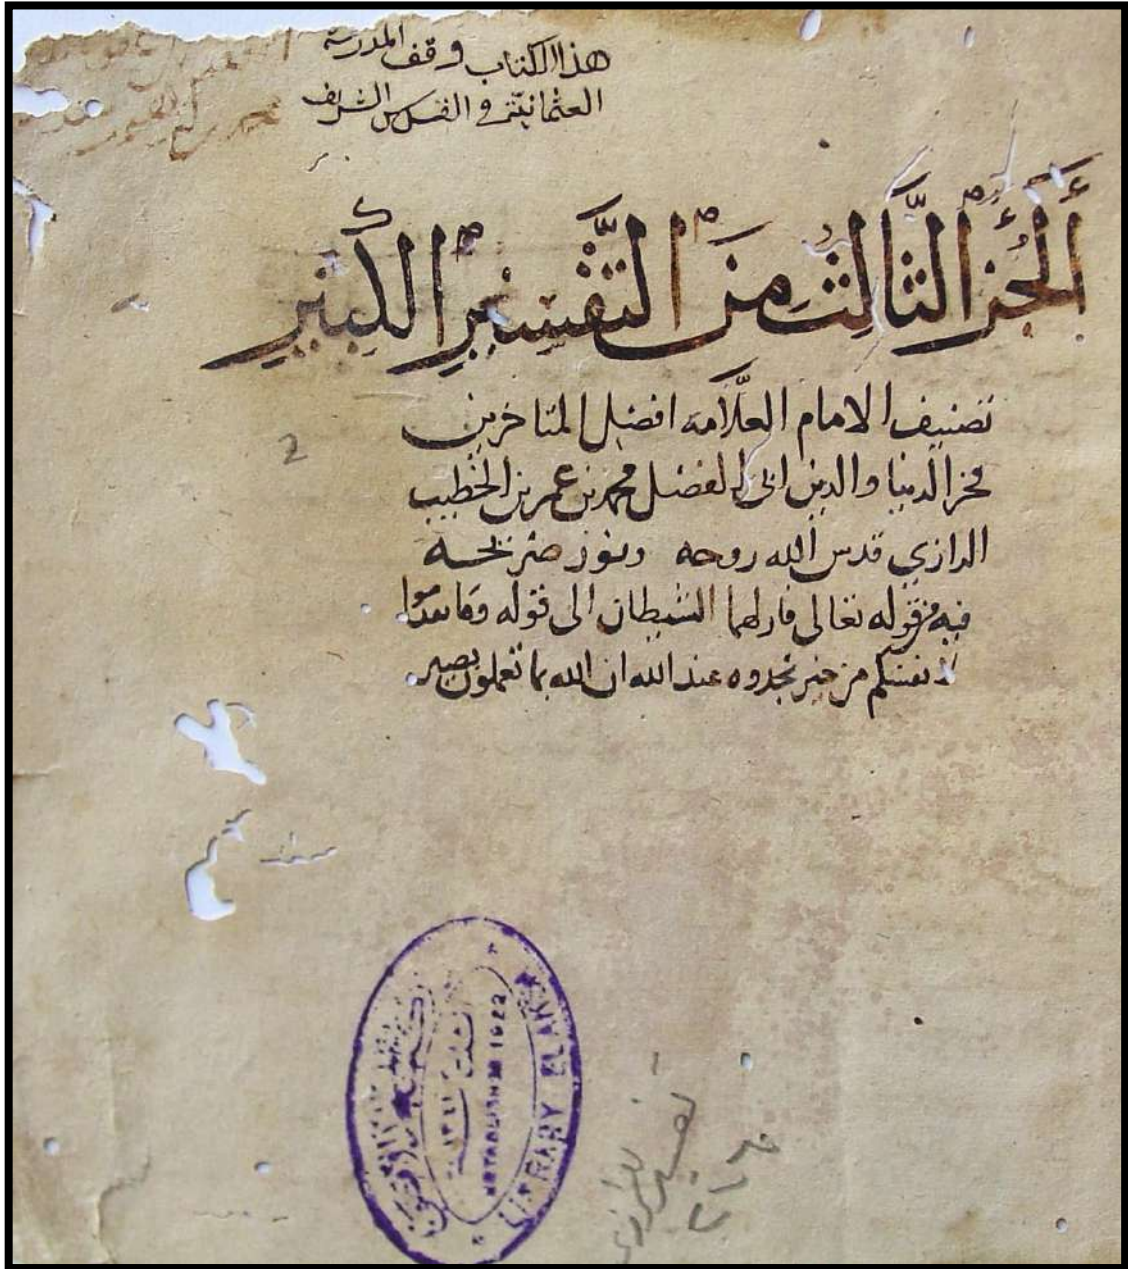 هذا الكتاب وقف المدرسة
العثمانية في القدس الشريف
أَلجُزءُ الثَّالِثُ مِنَ التَّفْسِيرِ الكَبِيرِ
تصنيف الامام العلَّامه افضل المتاخرين
فخر الدنيا والدين ابي الفضل محمد بن عمر بن الخطيب
الرازي قدس الله روحه ونور ضريحه
فيه من قوله تعالى فازلهما الشيطان الى قوله وما تقدموا
لانفسكم من خير تجدوه عند الله ان الله بما تعملون بصير
2
ESTABLISHED 1922
LIBRARY ELAKSA
تفسير الرازي